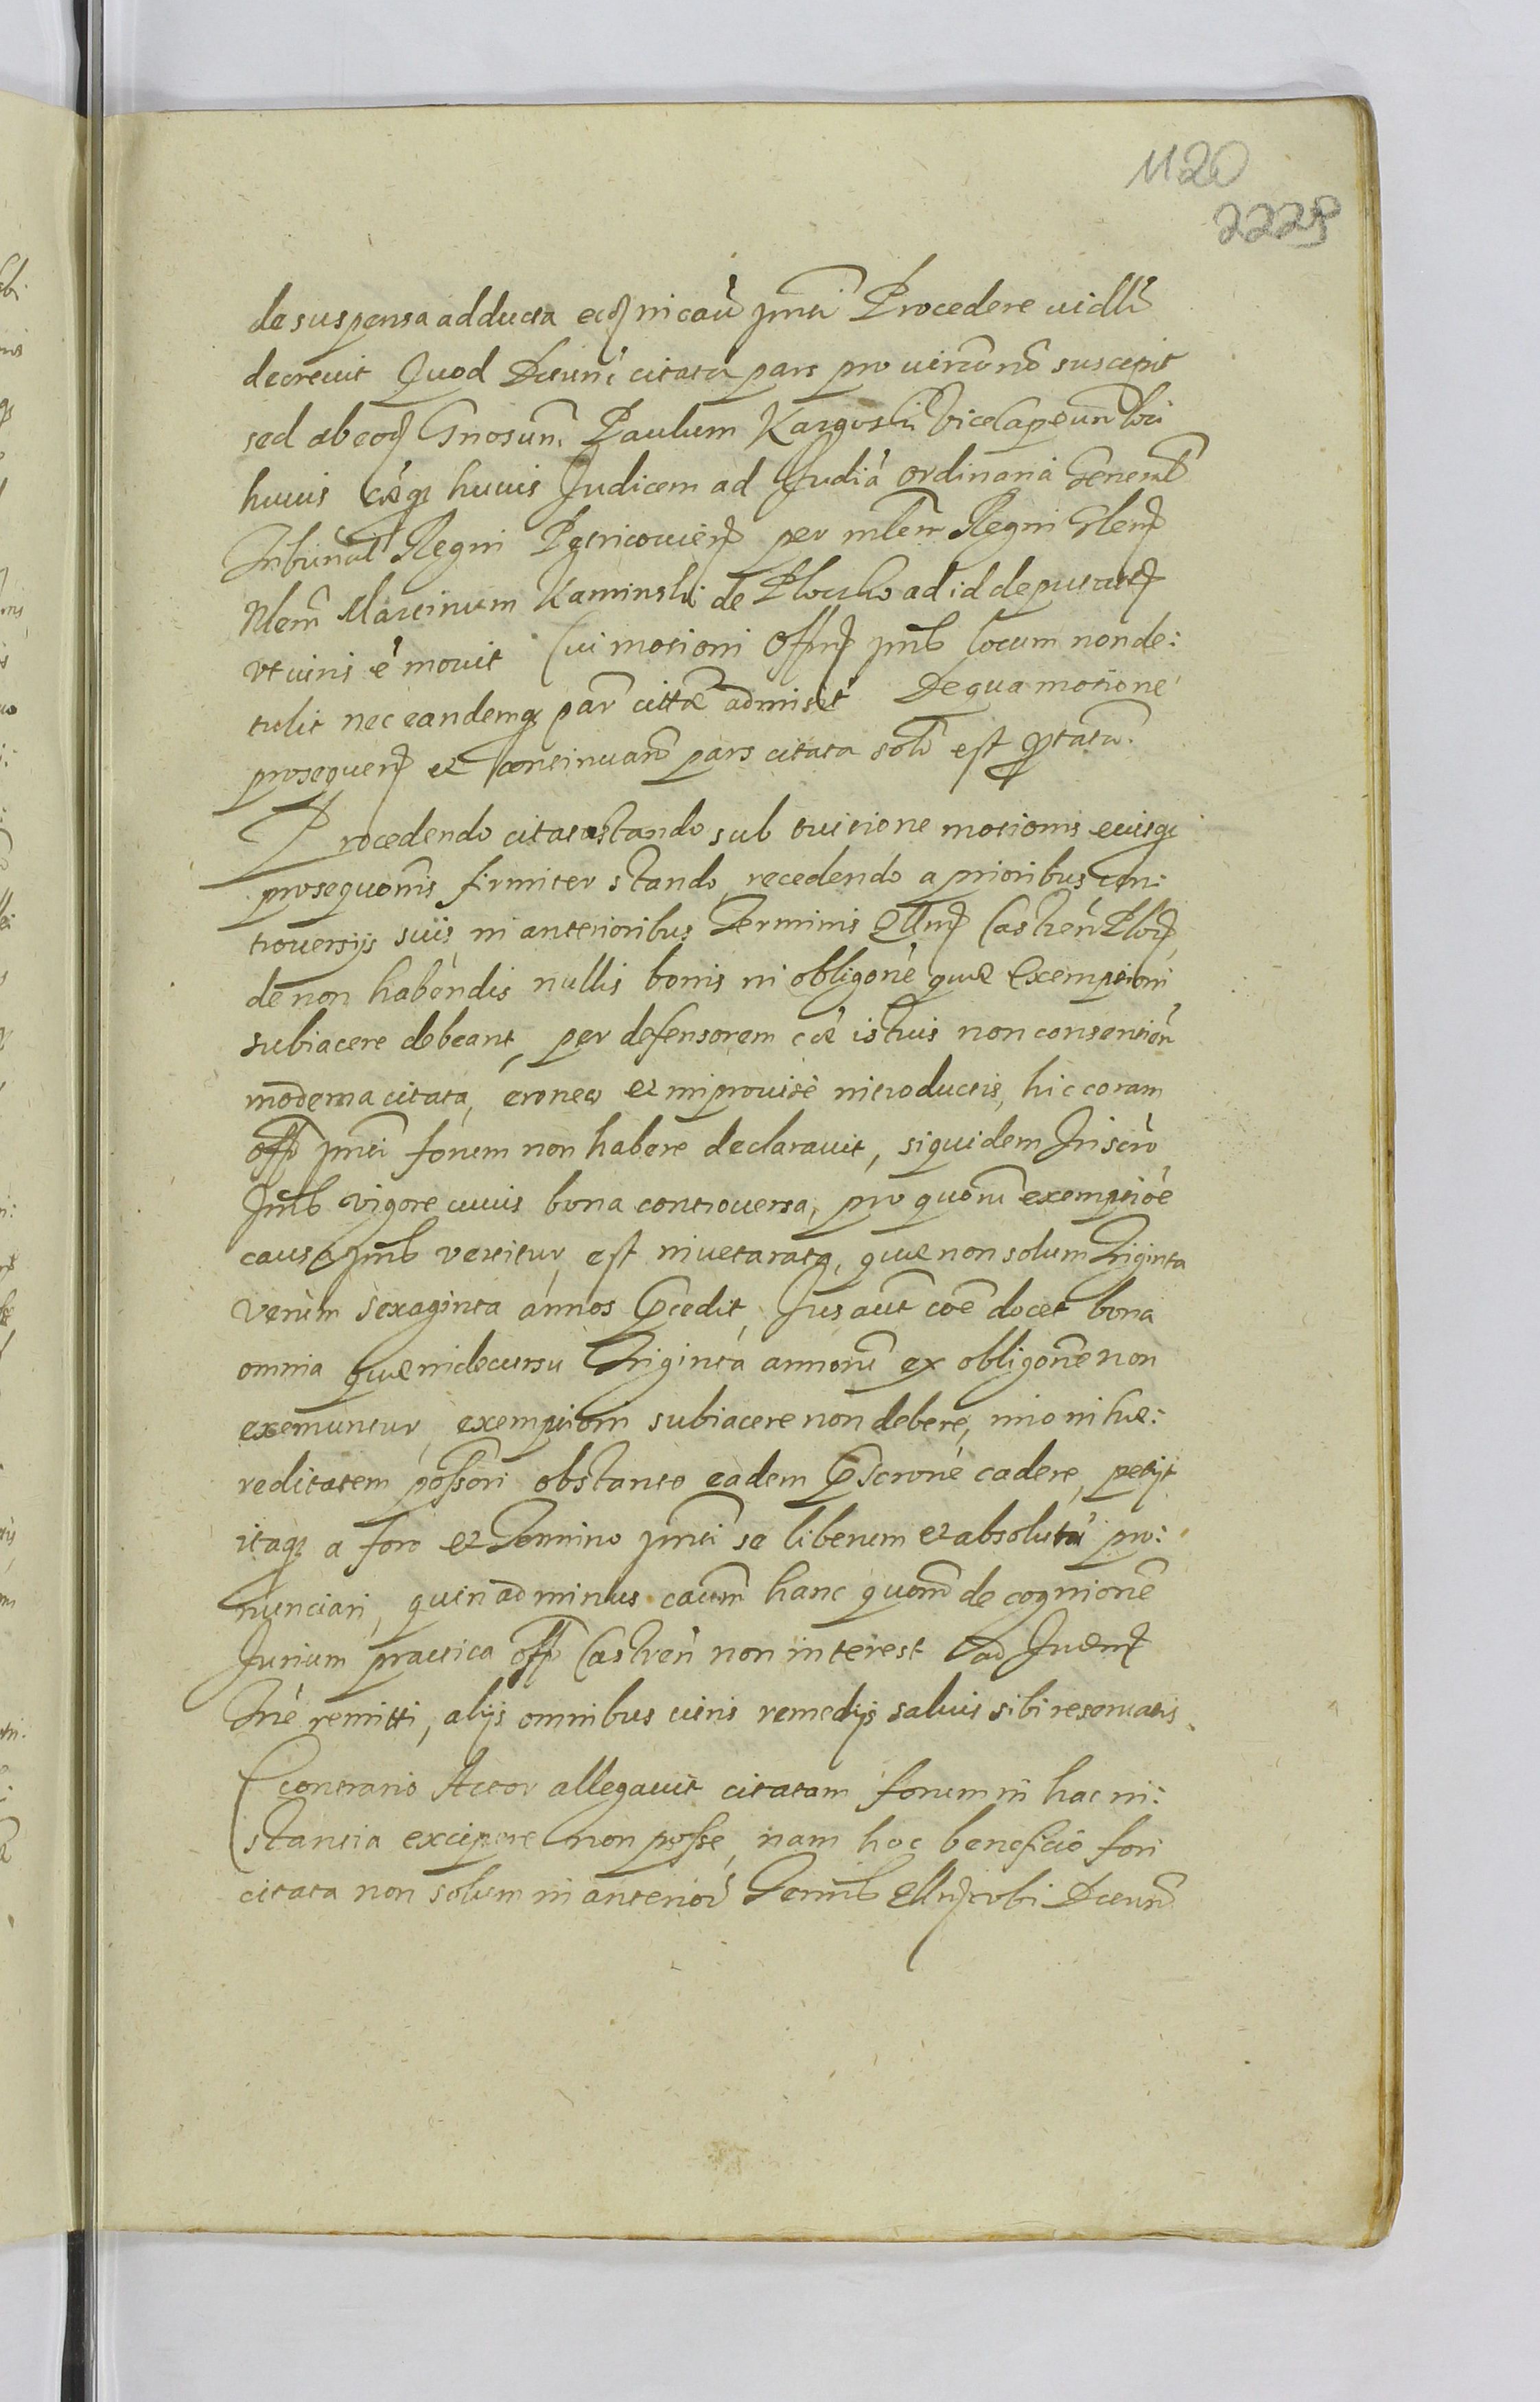 1120
2229
de suspensa adducta eoq in cau pnti Procedere uidlt
decreuit Quod Decretu citata pars pro uim no suscepit
sed ab eoq Gnosum Paulum Kargoski Vice Capeum loci
huius cäeq huius Judicem ad Judia ordinaria General
Tribunal Regni Petricouien per mlem Regni Glen
Nlem Marcinum Kaminski de Plocko ad id deputat
vt iuris e mouit Cui motioni Offm pnb locum non de:
tulit nec eandemq par cittae admisit De qua motione
prosequen et continuan pars citata soln est ptata.
Procedendo citata stando sub tuitione motionis euisq
prosequonis firmiter stando recedendo a prioribus con:
trouersijs suis in anterioribus Terminis Qllm Castren Plo
de non habendis nullis bonis in obligone quae Exemptioni
subiacere debeant, per defensorem cae istius non consention
moderna citata, eronee et improuise introductis, hic coram
offo pnti forum non habere declarauit, siquidem Inscro
Jnb vigore cuius bona controuersa, pro quoru exemptioe
causa pnb vertitur, est inueterata, quae non solum Triginta
verum sexaginta annos excedit, Jus aut coe docet bona
omnia quae in decursu Triginta annoru ex obligone non
exemuntur, exemptioni subiacere non debere, imo in hae:
reditatem possori obstante eadem pscrone cadere, petijt
itaq a foro et Termino pnti se liberum et absolutu pro:
nunciari, quin ad minus caum hanc quom de cognione
Jurium practica offo Castren non interest ad Judm
Trle remitti, alijs omnibus iuris remedijs saluis sibi reseruatis.
Econtrario Actor allegauit citatam forum in hac in:
stantia excipere non posse, nam hoc beneficio fori
citata non solum in anteriori Termb Qllm ubi Decretum